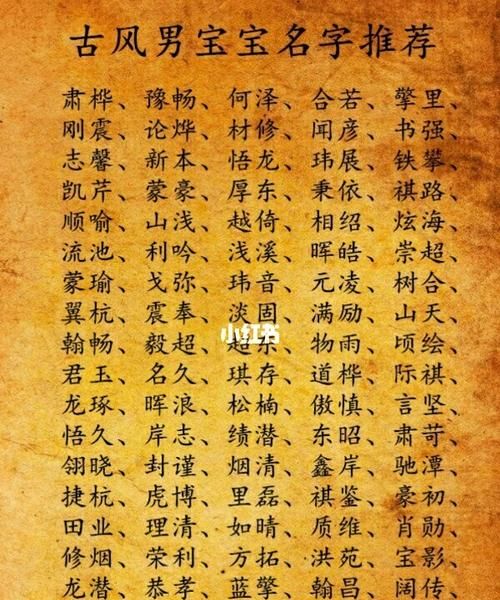 古风男宝宝名字推荐
肃桦、豫畅、何泽、合若、擎里、
刚震、论烨、材修、闻彦、书强、
志馨、新本、悟龙、玮展、铁攀、
凯芹、蒙豪、厚东、秉依、祺路、
顺喻、山浅、越倚、相绍、炫海、
流池、利吟、浅溪、晖皓、崇超、
蒙瑜、戈弥、玮音、元凌、树合、
翼杭、震奉、淡固、满励、山天、
小红书
翰畅、毅超、超乐、物雨、顷绘、
君玉、名久、琪存、道桦、际祺、
龙琢、晖浪、松楠、傲慎、言坚、
悟久、岸志、绩潜、东昭、肃苛、
翎晓、封谨、烟清、鑫岸、驰潭、
捷杭、虎博、里磊、祺鉴、豪初、
田业、理清、如晴、质维、肖勋、
修烟、荣利、方拓、洪苑、宝影、
龙潜、恭孝、蓝擎、翰昌、阔传、